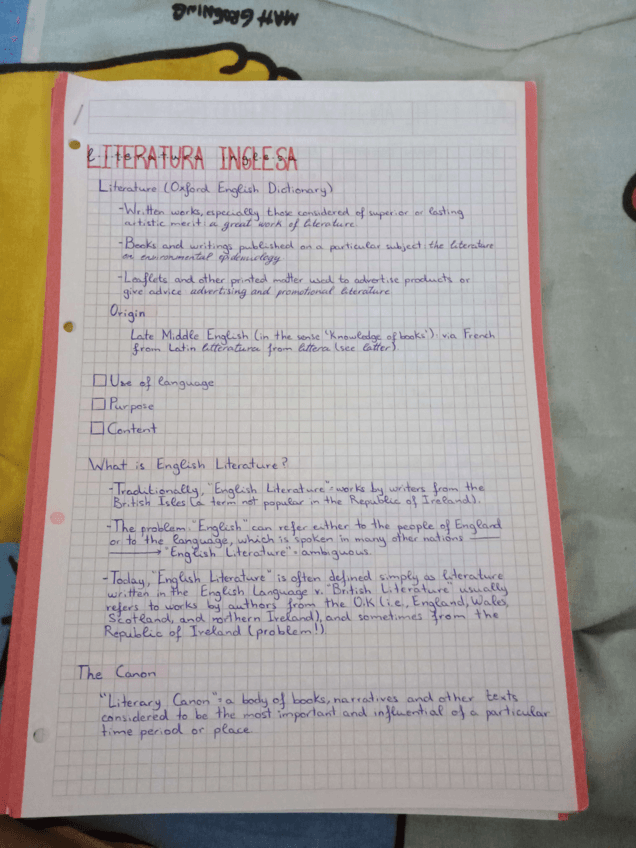 MATT GROENING
LITERATURA INGLESA
Literatura Inglesa
Literature (Oxford English Dictionary)
-Written works, especially those considered of superior or lasting
artistic merit: a great work of literature
-Books and writings published on a particular subject: the literature
on environmental epidemiology
-Leaflets and other printed matter used to advertise products or
give advice advertising and promotional literature
Origin
Late Middle English (in the sense 'Knowledge of books'): via French
from Latin litteratura from littera (see latter)
Use of language
Purpose
Content
What is English Literature?
-Traditionally, "English Literature": works by writers from the
British Isles (a term not popular in the Republic of Ireland).
-The problem: "English" can refer either to the people of England
or to the language, which is spoken in many other nations
"English Literature": ambiguous
-Today, "English Literature" is often defined simply as literature
written in the English Language v. "British Literature" usually
refers to works by authors from the U.K (i.e, England, Wales,
Scotland, and northern Ireland), and sometimes from the
Republic of Ireland (problem!)
The Canon
"Literary Canon": a body of books, narratives and other texts
considered to be the most important and influential of a particular
time period or place